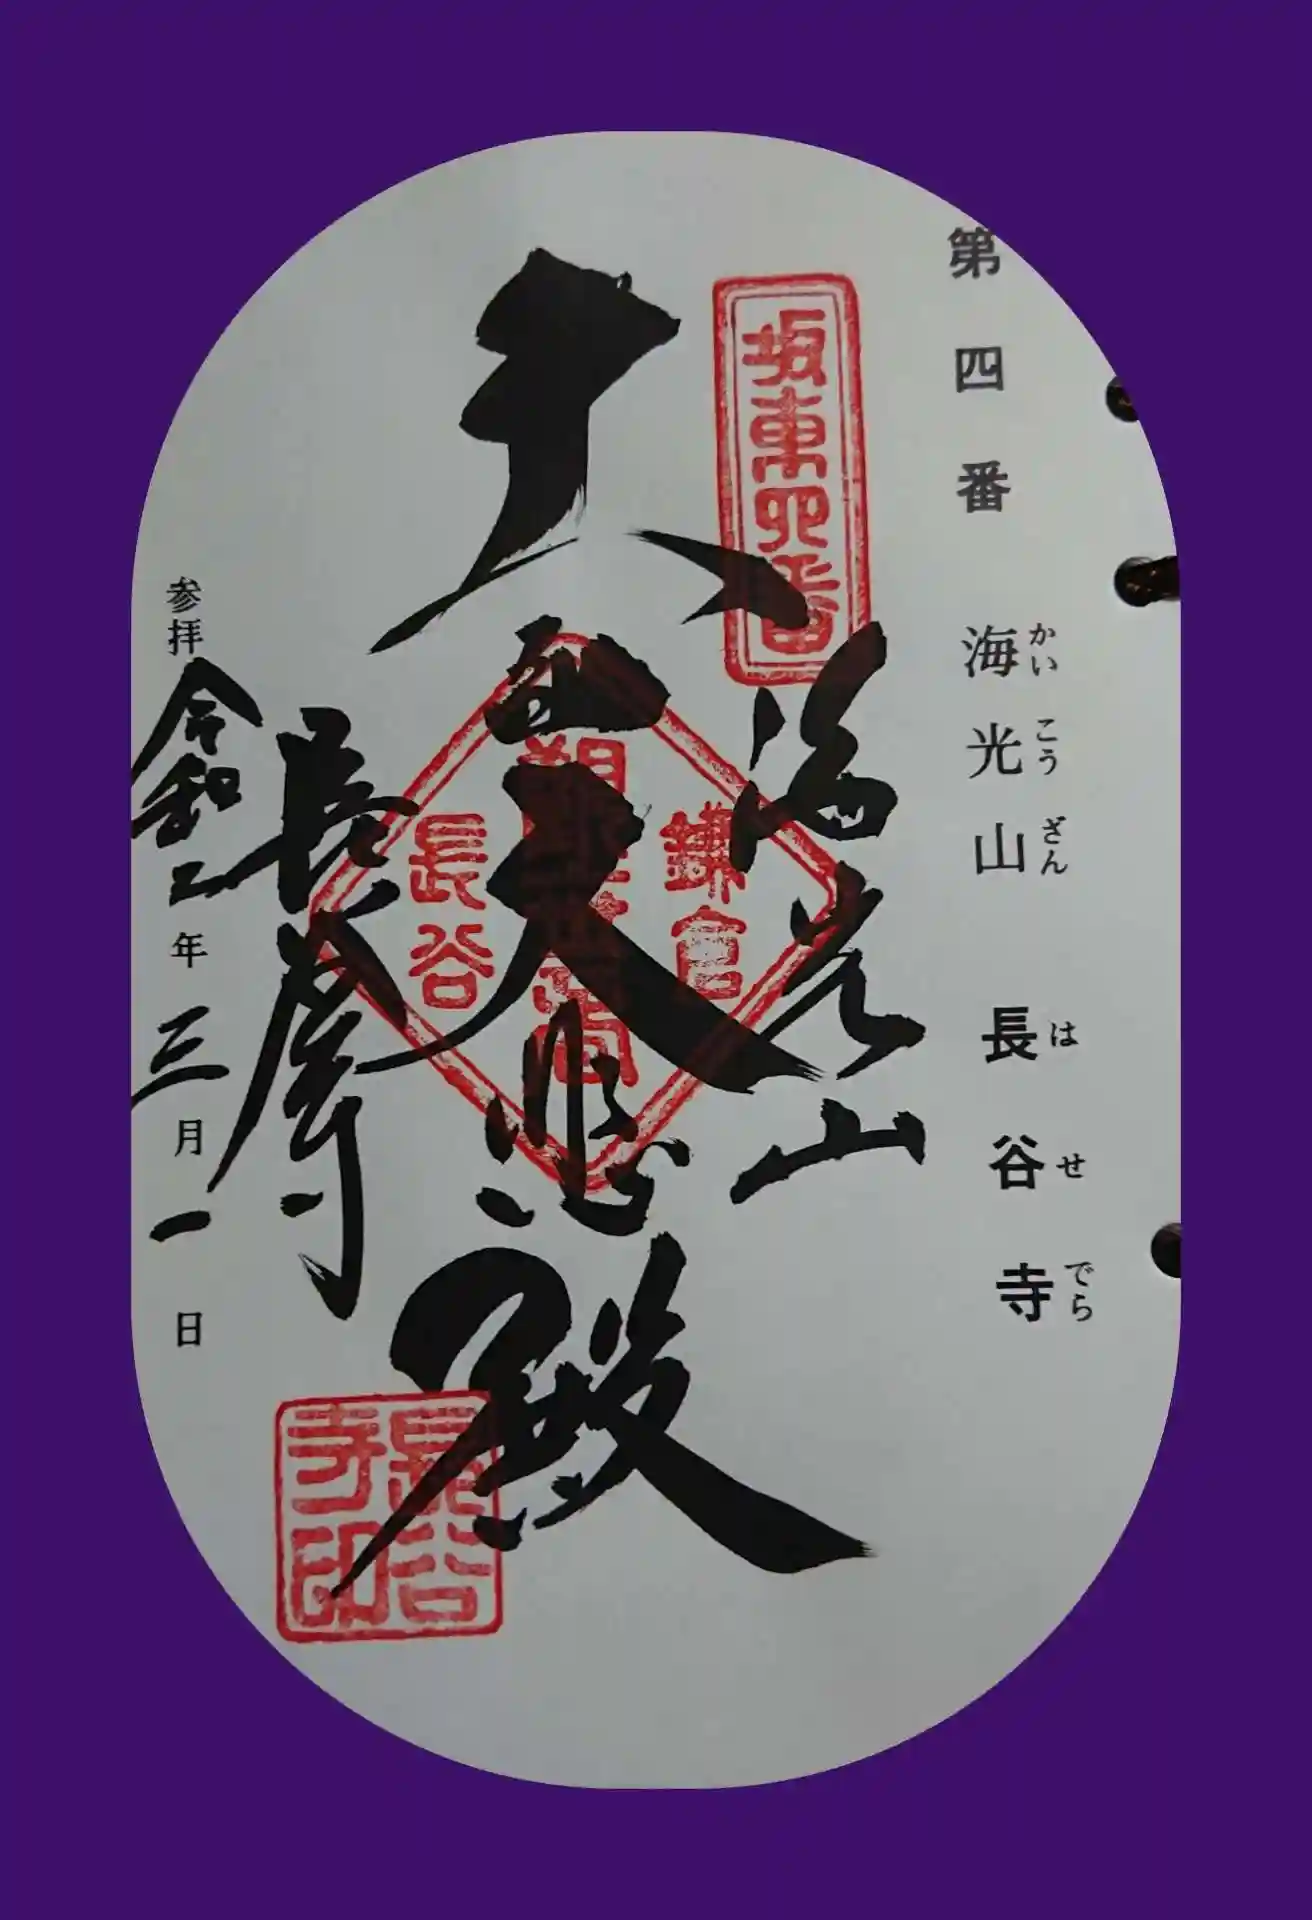 第四番 海光山 長谷寺
かいこうざん はせでら
坂東四番
海光山
鎌倉
十一面大悲殿
長谷
長谷寺
参拝 令和二年三月一日
長谷寺印